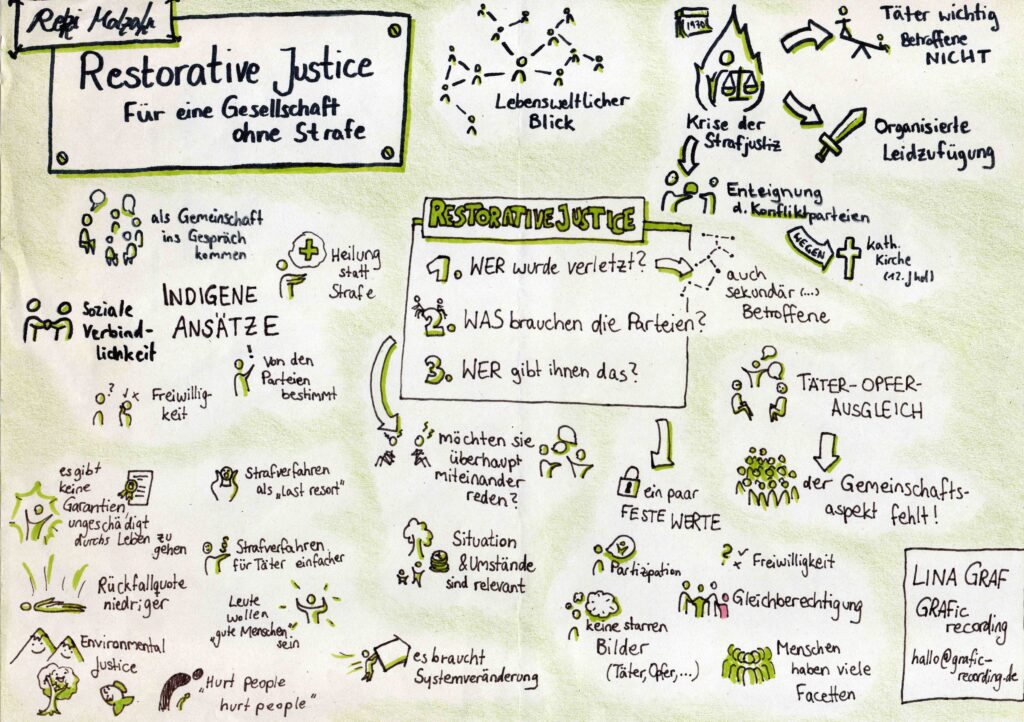 Rehzi Malzahn
Restorative Justice
Für eine Gesellschaft
ohne Strafe
Lebensweltlicher
Blick
1970
Krise der
Strafjustiz
Täter wichtig
Betroffene
NICHT
Organisierte
Leidzufügung
Enteignung
d. Konfliktparteien
WEGEN
kath.
Kirche
(12. Jhd)
als Gemeinschaft
ins Gespräch
kommen
Heilung
statt
Strafe
INDIGENE
ANSÄTZE
Soziale
Verbind-
lichkeit
? ✓x
Freiwillig-
keit
!
von den
Parteien
bestimmt
RESTORATIVE JUSTICE
1. WER wurde verletzt?
2. WAS brauchen die Parteien?
3. WER gibt ihnen das?
auch
sekundär (...)
Betroffene
möchten sie
überhaupt
miteinander
reden?
Situation
& Umstände
sind relevant
TÄTER-OPFER-
AUSGLEICH
der Gemeinschafts-
aspekt fehlt!
ein paar
FESTE WERTE
Partizipation
? ✓x
Freiwilligkeit
Gleichberechtigung
keine starren
Bilder
(Täter, Opfer, ...)
Menschen
haben viele
Facetten
es gibt
keine
Garantien,
ungeschädigt
durchs Leben zu
gehen
Strafverfahren
als „last resort"
§
Strafverfahren
für Täter einfacher
Rückfallquote
niedriger
Leute
wollen
„gute Menschen"
sein
Environmental
Justice
„Hurt people
hurt people"
es braucht
Systemveränderung
LINA GRAF
GRAFic
recording
hallo@grafic-
recording.de